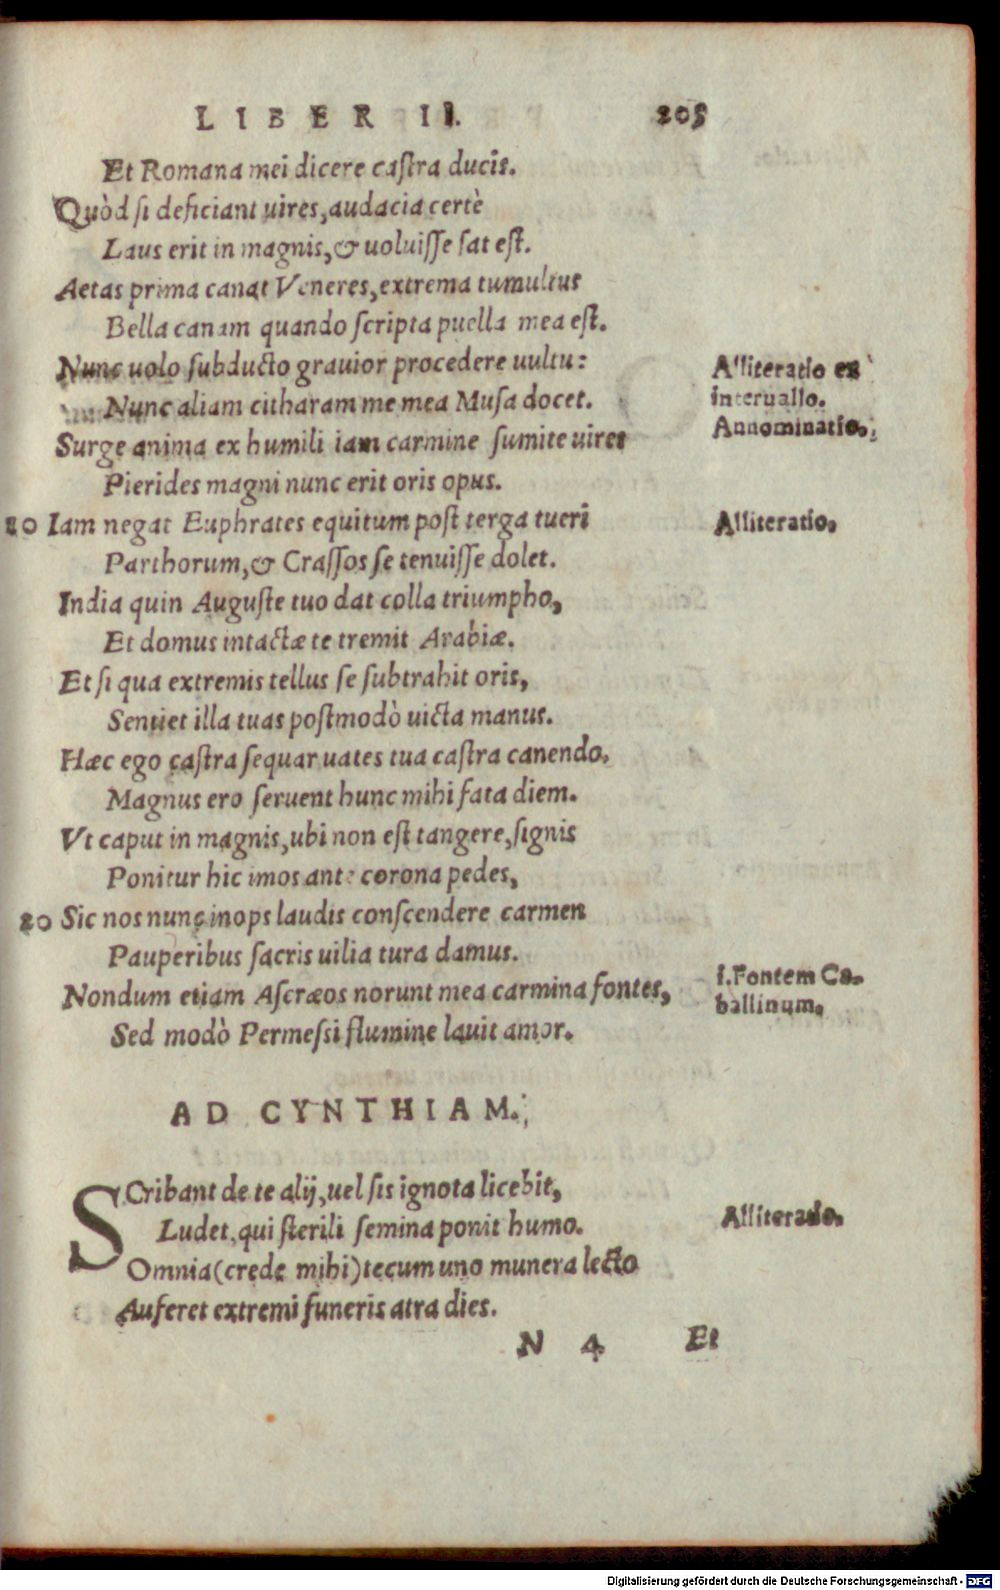 LIBER II. 205
Et Romana mei dicere caſtra ducis.
Quòd ſi deficiant uires, audacia certè
Laus erit in magnis, & uoluiſſe ſat eſt.
Aetas prima canat Veneres, extrema tumultus
Bella canam quando ſcripta puella mea eſt.
Nunc uolo ſubducto grauior procedere uultu:
Alliteratio ex
interuallo.
Nunc aliam citharam me mea Muſa docet.
Annominatio.
Surge anima ex humili iam carmine ſumite uires
Pierides magni nunc erit oris opus.
10 Iam negat Euphrates equitum poſt terga tueri
Alliteratio.
Parthorum, & Craſſos ſe tenuiſſe dolet.
India quin Auguſte tuo dat colla triumpho,
Et domus intactæ te tremit Arabiæ.
Et ſi qua extremis tellus ſe ſubtrahit oris,
Sentiet illa tuas poſtmodò uicta manus.
Hæc ego caſtra ſequar uates tua caſtra canendo.
Magnus ero ſeruent hunc mihi fata diem.
Vt caput in magnis, ubi non eſt tangere, ſignis
Ponitur hic imos ante corona pedes,
20 Sic nos nunc inops laudis conſcendere carmen
Pauperibus ſacris uilia tura damus.
Nondum etiam Aſcræos norunt mea carmina fontes,
i. Fontem Ca-
ballinum.
Sed modò Permeſſi flumine lauit amor.
AD CYNTHIAM.
SCribant de te alij, uel ſis ignota licebit,
Ludet, qui ſterili ſemina ponit humo.
Alliteratio.
Omnia (crede mihi) tecum uno munera lecto
Auferet extremi funeris atra dies.
N 4 Et
Digitalisierung gefördert durch die Deutsche Forschungsgemeinschaft - DFG